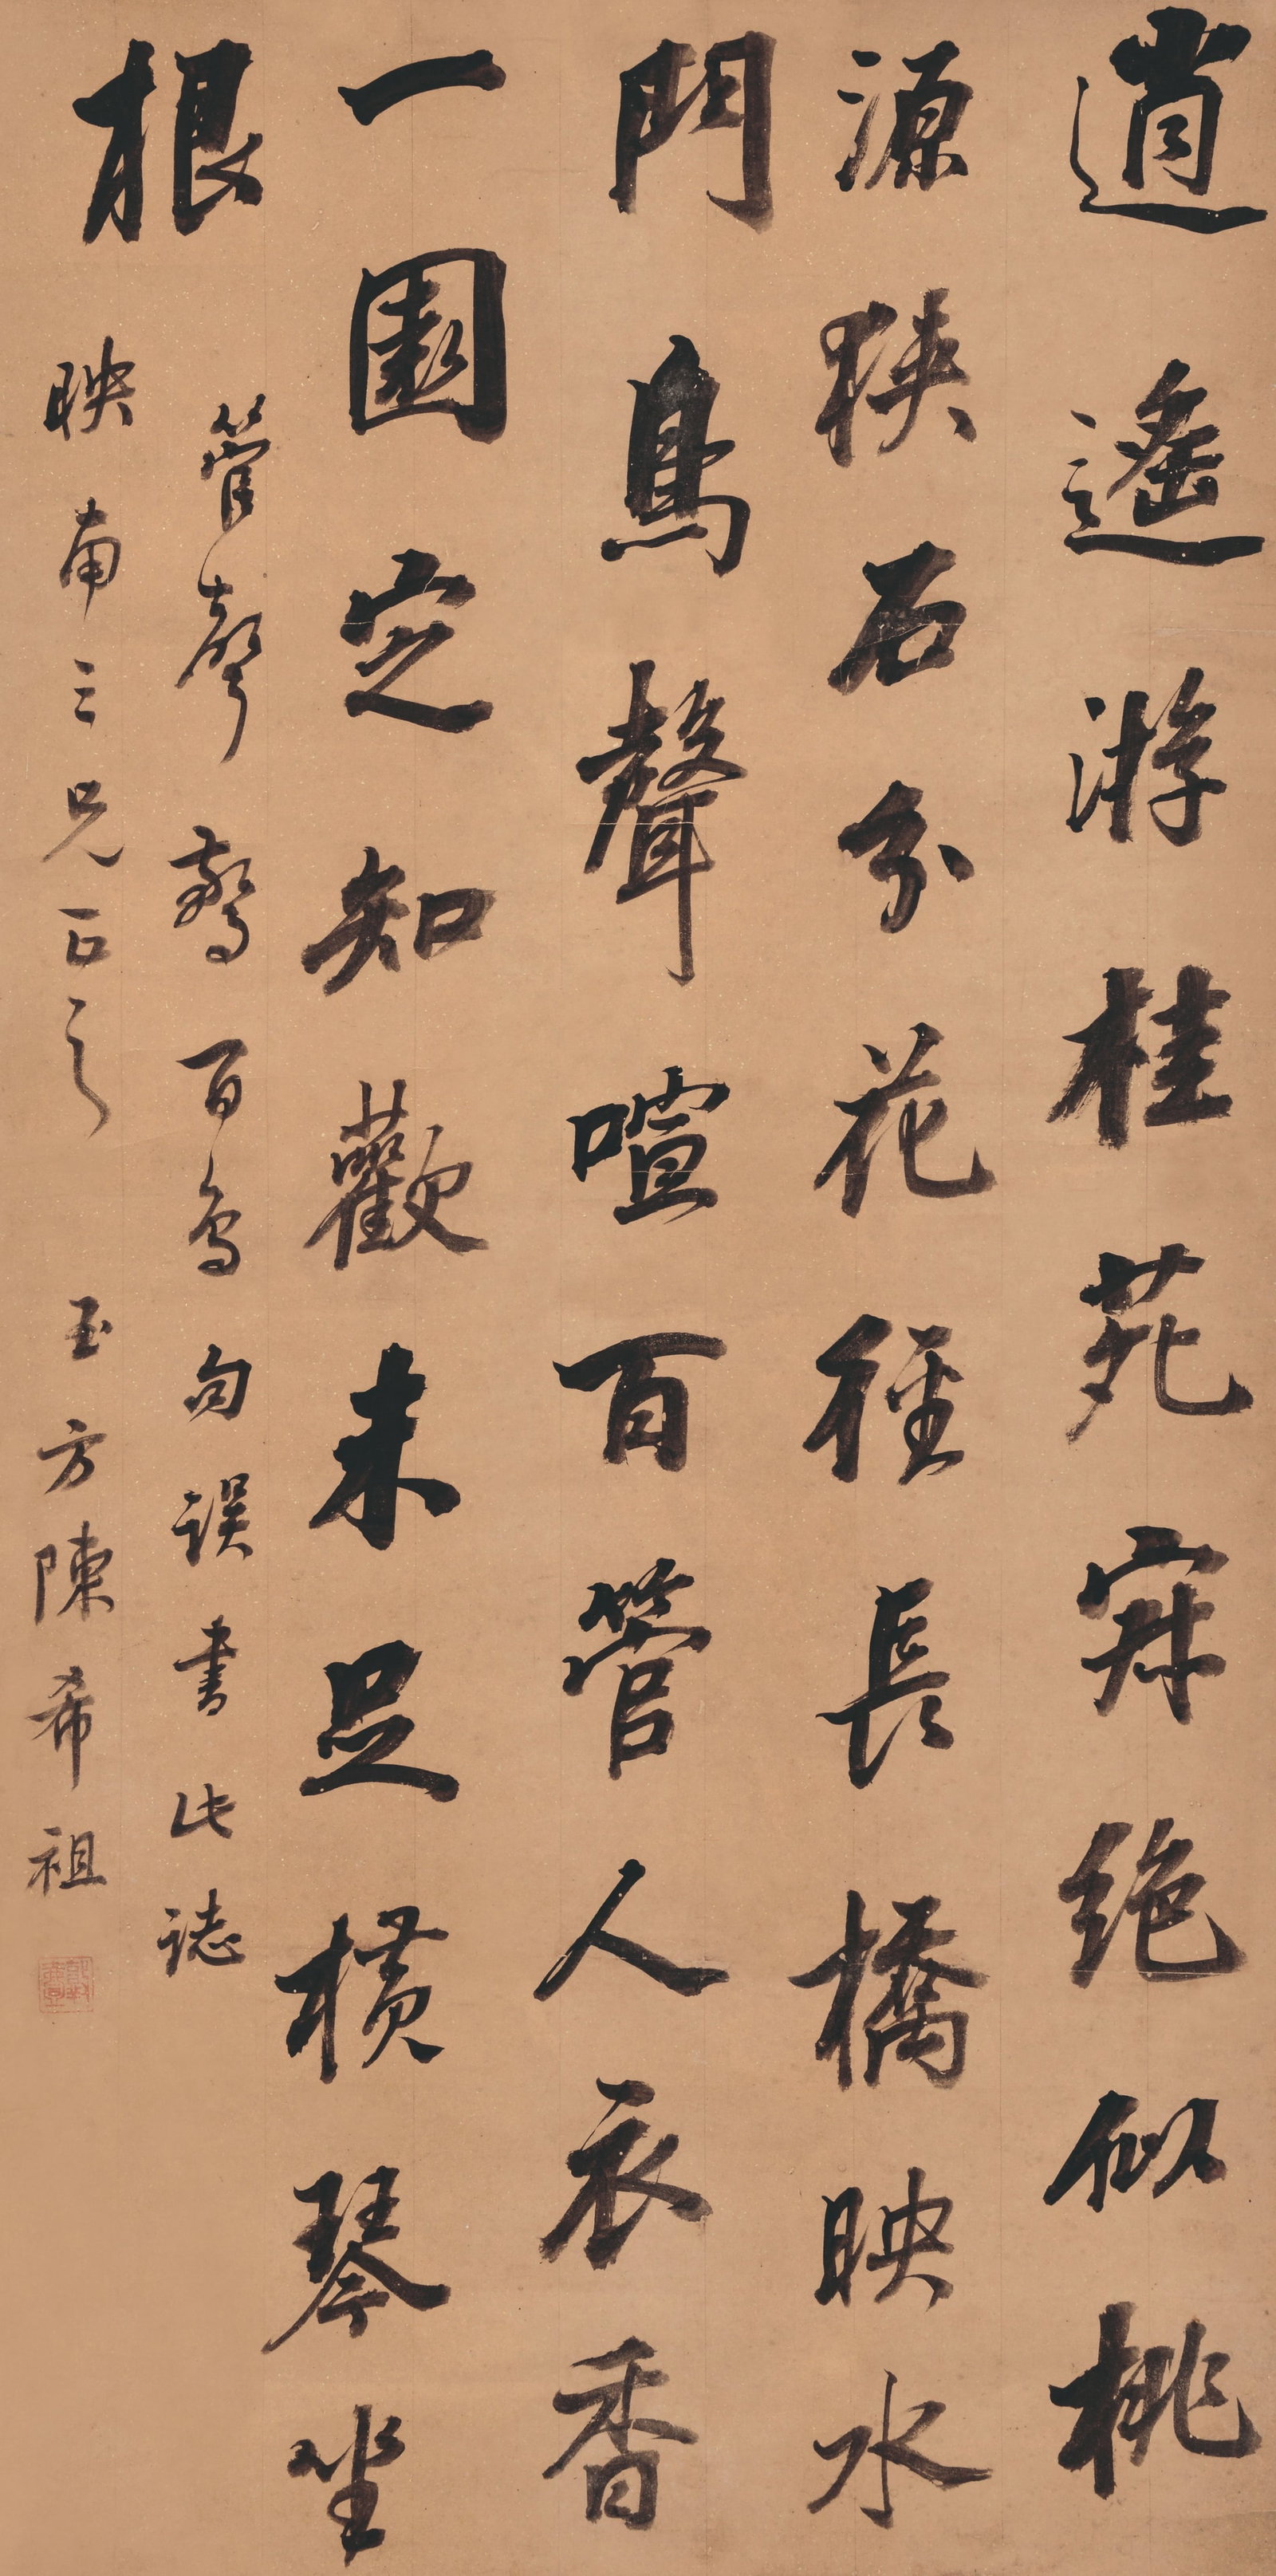 逍遙游桂苑寂絶似桃
源狹石分花徑長橋映水
門鳥聲喧百管人衣香
一園定知歡未足橫琴坐
根
管聲驚百鳥句誤書此誌
映南三兄正之 玉方陳希祖